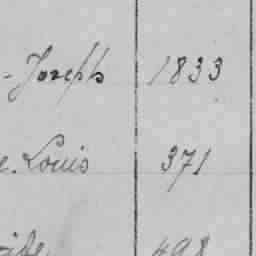 -Joseph 1833
e. Louis 371
498